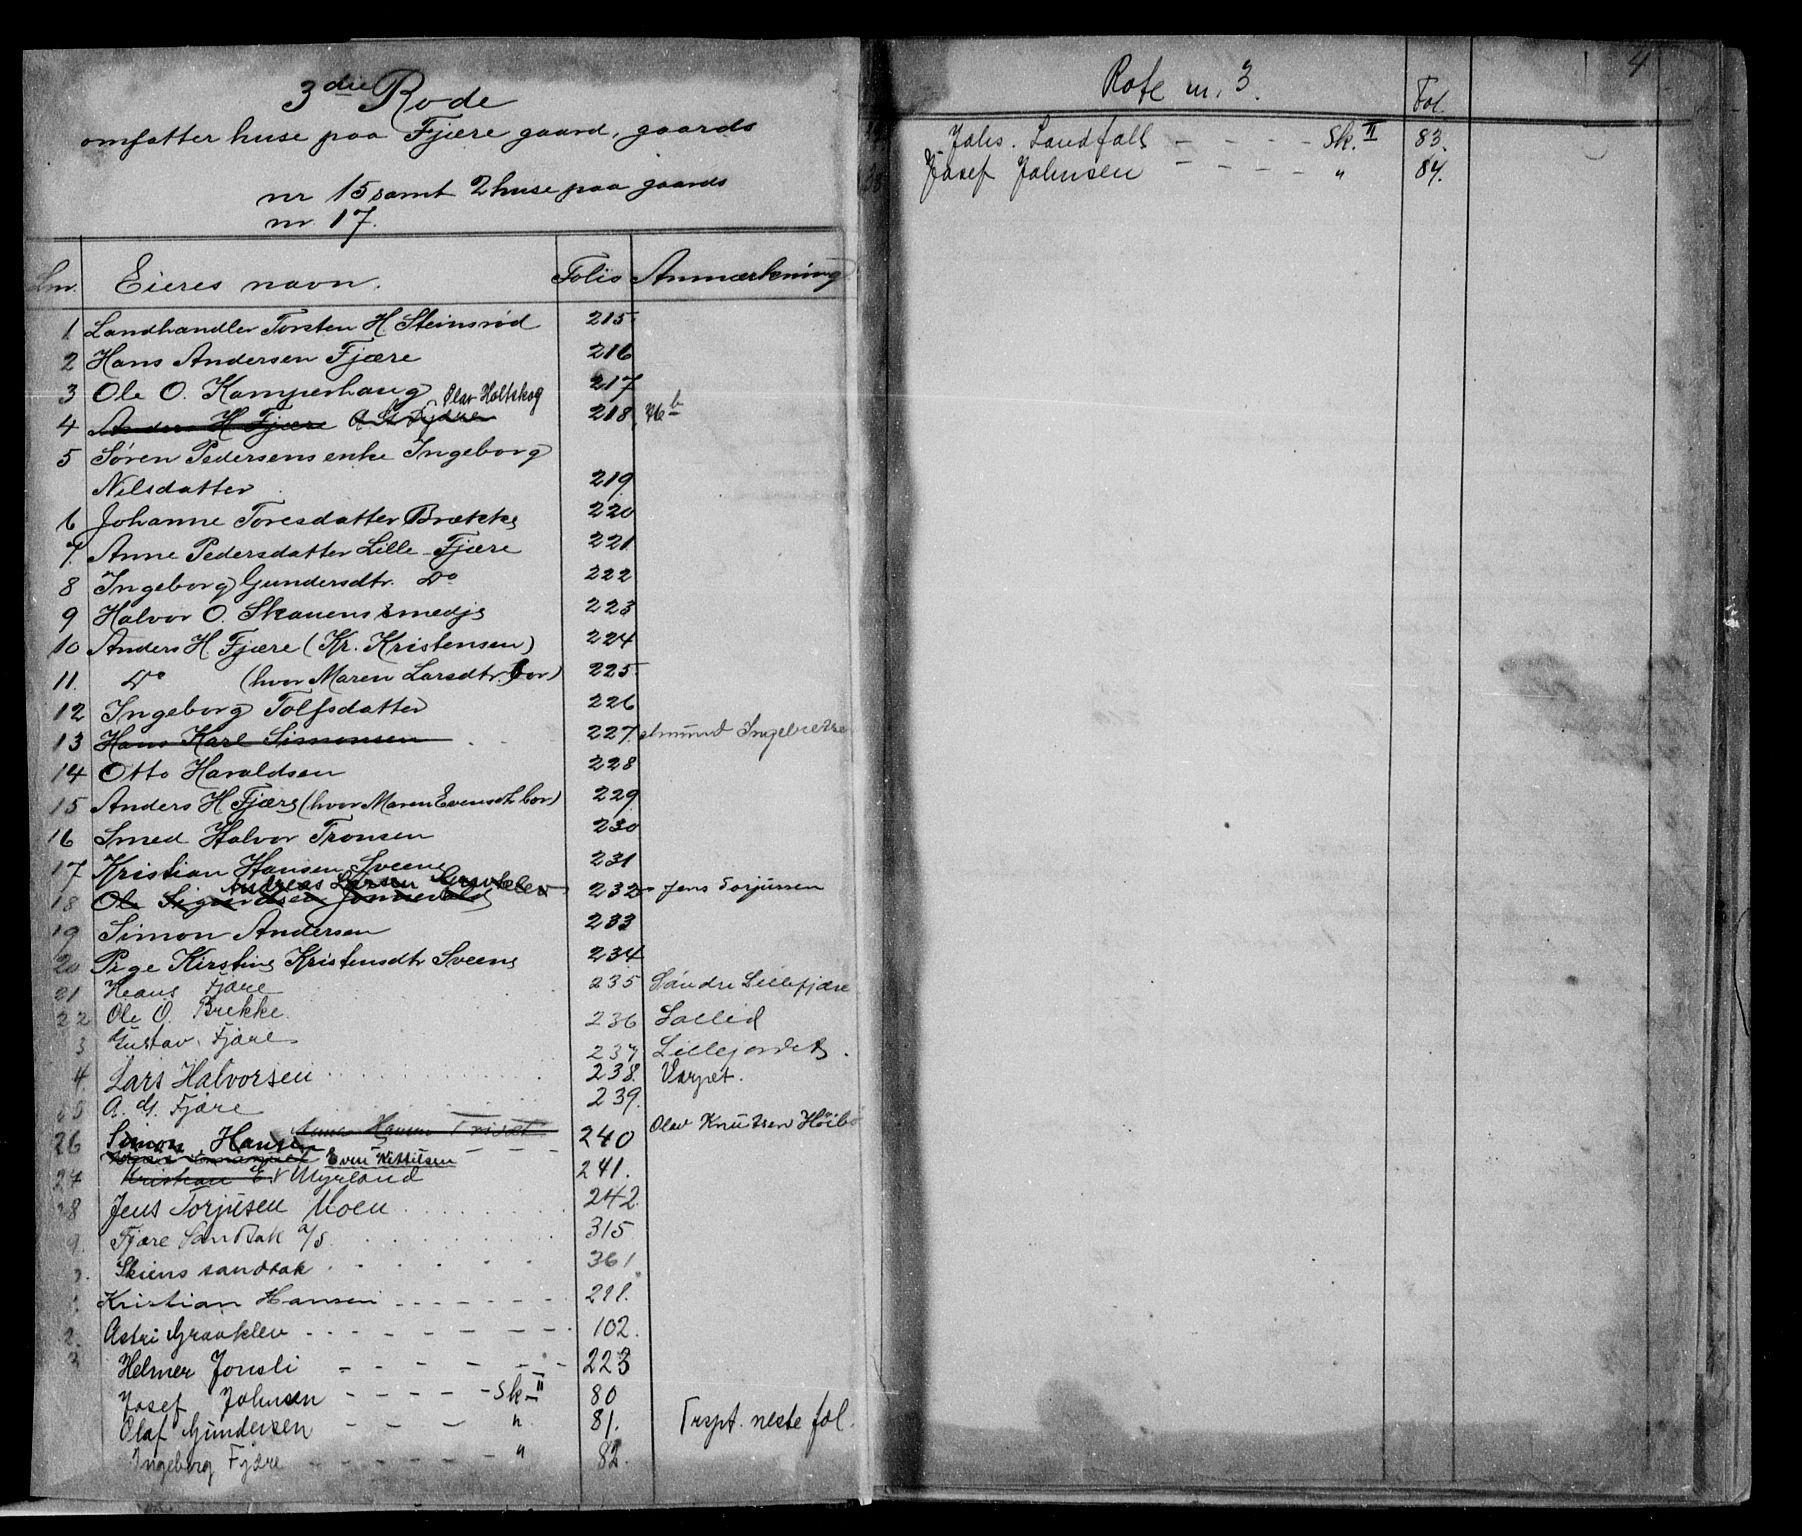 3die Rode
omfatter huse paa Fjære gaard, gaards
nr 15 samt 2 huse paa gaards
nr 17.
Lnr. Eieres navn. Folio Anmærkning
1. Landhandler Torsten H. Steinsrød 215
2 Hans Andersen Fjære 216
3 Ole O. Kamperhaug 217
Olav Holtskog
4 Anders H Fjære A. H. Fjære 218, 76b
5 Søren Pedersens enke Ingeborg
Nilsdatter 219
6 Johanne Toresdatter Brække 220
7. Anne Pedersdatter Lille-Fjære 221
8 Ingeborg Gundersdtr. Do 222
9 Halvor O. Skauens smedje 223
10 Anders H. Fjære (Kr. Kristensen) 224
11. Do (hvor Maren Larsdtr. bor) 225
12 Ingeborg Tolfsdatter 226
13 Hans Karl Simonsen 227. Amund Ingebretse
14 Otto Haraldsen 228
15 Anders H Fjære (hvor Maren Evensdt bor) 229
16 Smed Halvor Tronsen 230
17 Kristian Hansen Sveene 231
Andreas Larsen
18 Ole Sigurdsen 232 Jens Torjussen
19 Simon Andersen 233
20 Pige Kirstine Kristensdtr Sveene 234
21 Heans Fjære 235 Søndre Lillefjære
22 Ole O. Brekke 236
3 Gustav Fjære 237 Lillejordet.
4. Lars Halvorsen 238. Varpet.
25 A. H. Fjære 239.
26 Simon Hansen 240 Olav Knutsen Høibø
Even Kittilsen
27 Kristian E. Myrland 241.
28 Jens Torjusen Moen 242
9. Fjære Sandtak a/s 315
Skiens sandtak 361
1. Kristian Hansen 211.
2. Astri Graaklev 102.
3 Helmer Jonsli 223
Josef Johnsen Sk. II 80
Olaf Gundersen " 81. Trspt. neste fol.
Ingeborg Fjære " 82.
4
Rote nr. 3. Fol.
Johs. Landfall Sk. II 83.
38 Josef Johnsen " 84.